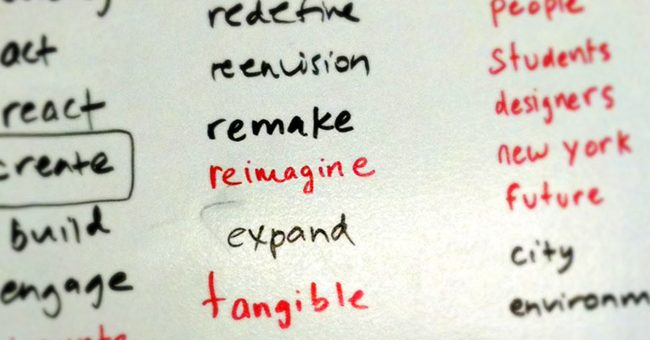 act
react
create
build
engage
redefine
reenvision
remake
reimagine
expand
tangible
people
students
designers
new york
future
city
environm